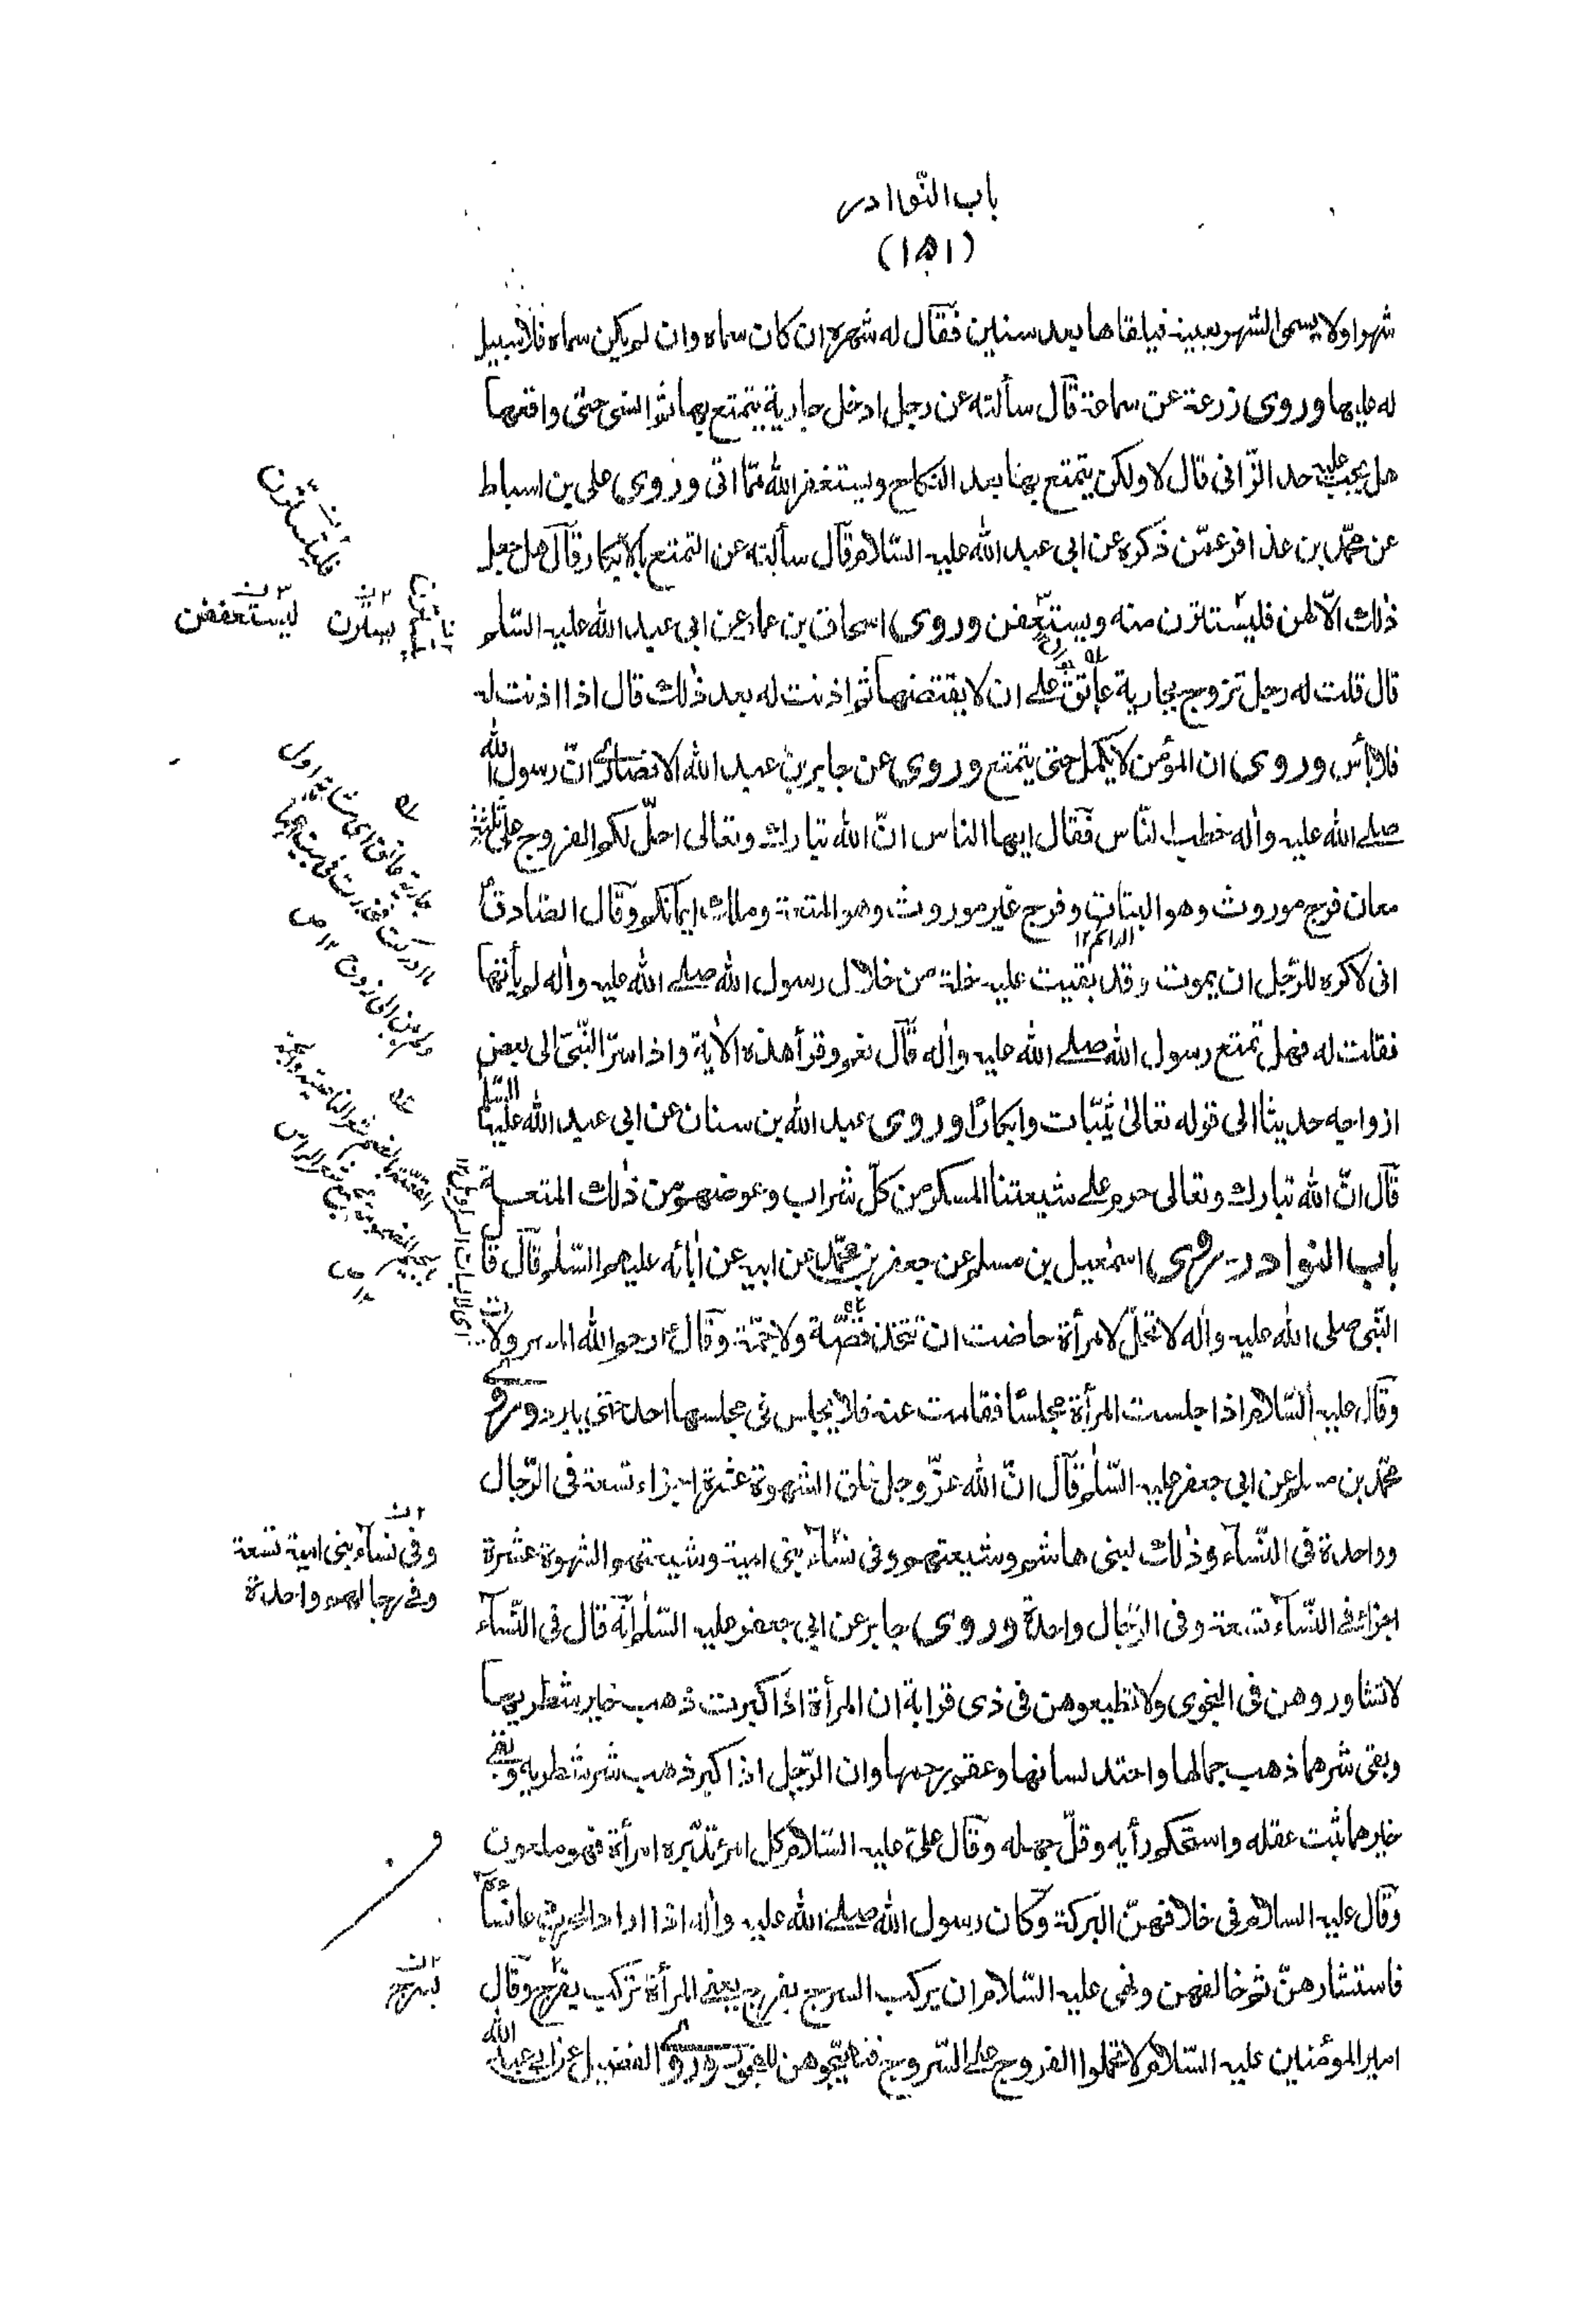 باب النّوادر
(١٥١)
شهرا ولا يسمى الشهر بعينه فيلقاها بعد سنين فقال له شهره ان كان سماه وان لم يكن سماه فلا سبيل
له عليها وروى زرعة عن سماعة قال سألته عن رجل ادخل جارية يتمتع بها ثم انسى حتى واقعها
هل يجب عليه حد الزّانى قال لا ولكن يتمتع بها بعد النكاح ويستغفر الله ممّا اتى وروى على بن اسباط
عن محمّد بن عذافر عمّن ذكره عن ابى عبد الله عليه السّلام قال سألته عن التمتع بالابكار قال هل جعل
ذلك الّا لهن فليستترن منه وليستعففن وروى اسحاق بن عمار عن ابى عبد الله عليه السّلم
قال قلت له رجل تزوج بجارية عاتق على ان لا يقتضها ثم اذنت له بعد ذلك قال اذا اذنت له
فلا بأس وروى ان المؤمن لا يكمل حتى يتمتع وروى عن جابر بن عبد الله الانصارى انّ رسول الله
صلى الله عليه واله خطب النّاس فقال ايها الناس انّ الله تبارك وتعالى احلّ لكم الفروج على ثلثة
معان فرج موروث وهو البتات وفرج غير موروث وهو المتعة وملك ايمانكم وقال الصّادق
الدائم ١٢
انى لاكره للرّجل ان يموت وقد بقيت عليه خلة من خلال رسول الله صلى الله عليه واله لم يأتها
فقلت له فهل تمتع رسول الله صلى الله عليه واله قال نعم وقرأ هذه الاية واذ اسرّ النّبى الى بعض
ازواجه حديثا الى قوله تعالى ثيّبات وابكارًا وروى عبد الله بن سنان عن ابى عبد الله عليه السّلم
قال انّ الله تبارك وتعالى حرم على شيعتنا المسكر من كلّ شراب وعوضهم من ذلك المتعة
باب النوادر روى اسمعيل بن مسلم عن جعفر بن محمّد عن ابيه عن ابائه عليهم السّلم قال قال
النّبى صلى الله عليه واله لا تحلّ لامرأة حاضت ان تتخذ قصّة ولا جمّة وقال رحم الله المسرولات
وقال عليه السّلام اذا جلست المرأة مجلسًا فقامت عنه فلا يجلس فى مجلسها احد حتى يبرد وروى
محمّد بن مسلم عن ابى جعفر عليه السّلم قال انّ الله عزّ وجل خلق الشهوة عشرة اجزاء تسعة فى الرّجال
وواحدة فى النّساء وذلك لبنى هاشم وشيعتهم وفى نساء بنى امية وشيعتهم الشهوة عشرة
اجزاء فى النّساء تسعة وفى الرّجال واحدة وروى جابر عن ابى جعفر عليه السّلم انّه قال فى النّساء
لا تشاوروهن فى النجوى ولا تطيعوهن فى ذى قرابة ان المرأة اذا كبرت ذهب خير شطريها
وبقى شرهما ذهب جمالها واحتد لسانها وعقم رحمها وان الرّجل اذا كبر ذهب شرّ شطريه وبقى
خيرهما ثبت عقله واستحكم رأيه وقلّ جهله وقال علىّ عليه السّلام كل امرئ تدبّره امرأة فهو ملعون
وقال عليه السلام فى خلافهنّ البركة وكان رسول الله صلى الله عليه واله اذا اراد الحرب دعا نساءه
فاستشارهنّ ثم خالفهن ونهى عليه السّلام ان يركب السرج بفرج يعنى المرأة تركب بفرج وقال
امير المؤمنين عليه السّلام لا تحملوا الفروج على السّروج فتهيّجوهن للفجور وروى الفضيل عن ابى عبد الله
يستترن
ليستعففن
جارية عاتق اى شابة اول
ما ادركت فخدرت فى بيت اهلها
ولم تبن الى زوج ١٢ ص
وفى نساء بنى امية تسعة
وفى رجالهم واحدة